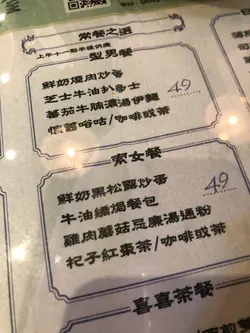 常餐之選
上午十一點半後供應
型男餐
鮮奶煙肉炒蛋
芝士牛油扒多士
蕃茄牛腩濃湯伊麵
懷舊峪咕/咖啡或茶
49
索女餐
鮮奶黑松露炒蛋
牛油焗餐包
雞肉蘑菇忌廉湯通粉
杞子紅棗茶/咖啡或茶
49
喜喜茶餐